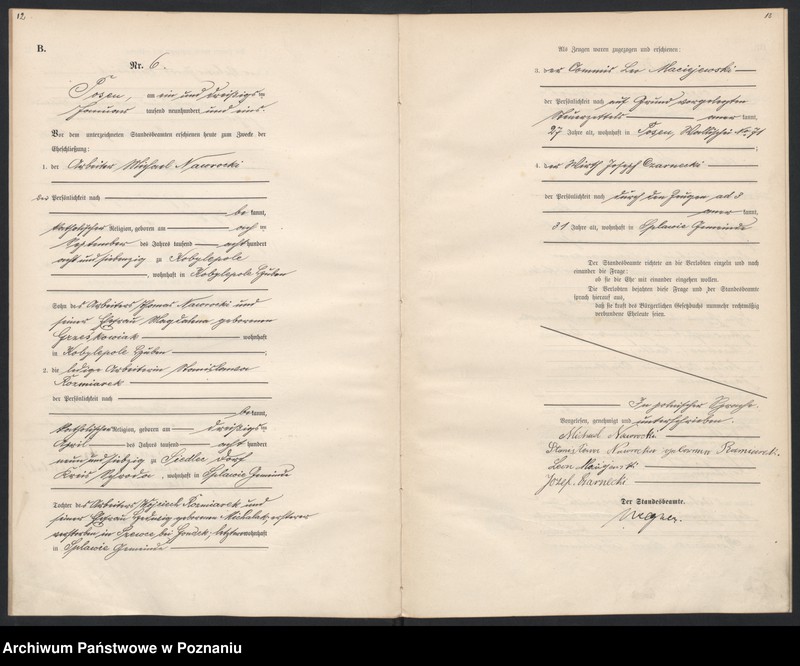 12
B.
Nr. 6.
Posen, am ein und dreißigsten
Januar tausend neunhundert und eins.
Vor dem unterzeichneten Standesbeamten erschienen heute zum Zwecke der
Eheschließung:
1. der Arbeiter Michael Nawrocki
der Persönlichkeit nach
bekannt,
katholischer Religion, geboren am
September des Jahres tausend achthundert
acht und siebenzig zu Kobylepole
, wohnhaft in Kobylepole Guben
Sohn des Arbeiters Thomas Nawrocki und
seiner Ehefrau Magdalena geborenen
wohnhaft
in Kobylepole Guben ;
2. die ledige Arbeiterin Stanislawa
Kozmiarek
der Persönlichkeit nach
bekannt,
katholischer Religion, geboren am dreißigsten
April des Jahres tausend achthundert
neun und siebzig zu Siedlec Dorf
Kreis Schroda, wohnhaft in Splawie Gemeinde
Tochter des Arbeiters Wojciech Kozmiarek und
seiner Ehefrau Hedwig geborenen Michalak, ersterer
verstorben in bei letztere wohnhaft
in Splawie Gemeinde
13
Als Zeugen waren zugezogen und erschienen:
3. der Commis Leo Maciejewski
der Persönlichkeit nach auf Grund vorgelegten
Steuerzettels anerkannt,
27 Jahre alt, wohnhaft in Posen, Wallischei No 71
;
4. der Wirth Joseph Czarnecki
der Persönlichkeit nach durch den Zeugen ad 3
anerkannt,
31 Jahre alt, wohnhaft in Splawie Gemeinde
Der Standesbeamte richtete an die Verlobten einzeln und nach
einander die Frage:
ob sie die Ehe mit einander eingehen wollen.
Die Verlobten bejahten diese Frage und der Standesbeamte
sprach hierauf aus,
daß sie kraft des Bürgerlichen Gesetzbuchs nunmehr rechtmäßig
verbundene Eheleute seien.
In polnischer Sprache.
Vorgelesen, genehmigt und unterschrieben.
Michael Nawrocki
Nawrocka
Leon
Józef Czarnecki
Der Standesbeamte.
Archiwum Państwowe w Poznaniu